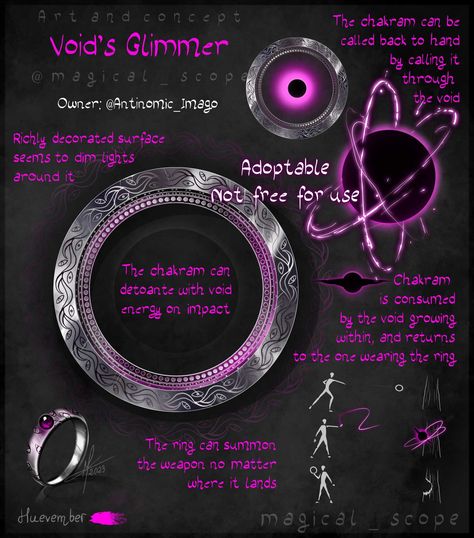 Art and concept
Void's Glimmer
@magical_scope
Owner: @Antinomic_Imago
The chakram can be
called back to hand
by calling it
through
the void
Richly decorated surface
seems to dim lights
around it
Adoptable
Not free for use
The chakram can
detoante with void
energy on impact
Chakram
is consumed
by the void growing
within, and returns
to the one wearing the ring
The ring can summon
the weapon no matter
where it lands
2023
Huevember
magical_scope